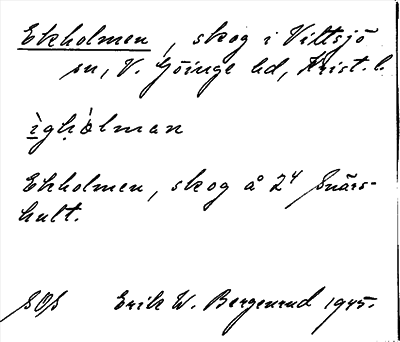 Ekholmen, skog i Vittsjö
sn, V. Göinge hd, Krist. l.
ìghòlman
Ekholmen, skog å 2⁴ Snärs-
hult.
SOS Erik W. Bergenrud 1945.